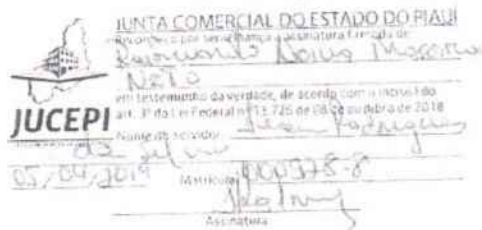 JUNTA COMERCIAL DO ESTADO DO PIAUÍ
Reconheço por semelhança a assinatura firmada de
Raimundo
Neto
em testemunho da verdade, de acordo com o inciso I do
art. 3º da Lei Federal nº 13.726 de 08 de outubro de 2018
JUCEPI
Nome do servidor
da Silva
05/04/2019 Matrícula 000578-8
Assinatura